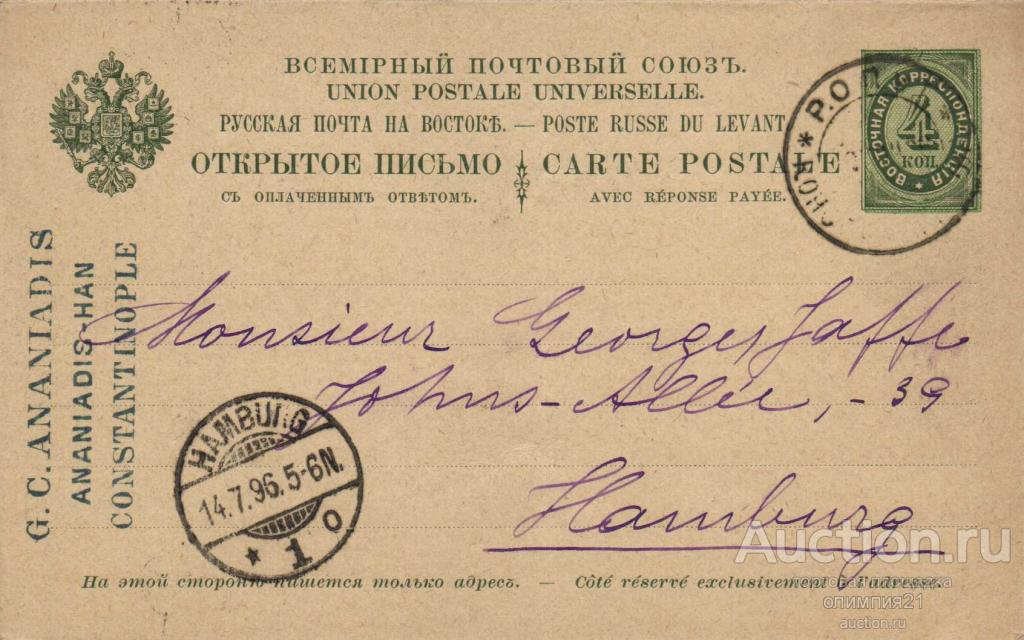 ВСЕМІРНЫЙ ПОЧТОВЫЙ СОЮЗЪ.
UNION POSTALE UNIVERSELLE.
РУССКАЯ ПОЧТА НА ВОСТОКѢ. — POSTE RUSSE DU LEVANT
ОТКРЫТОЕ ПИСЬМО CARTE POSTALE
СЪ ОПЛАЧЕННЫМЪ ОТВѢТОМЪ. AVEC RÉPONSE PAYÉE.
ВОСТОЧНАЯ КОРРЕСПОНДЕНЦІЯ
4
КОП.
Р.О.П.
G. C. ANANIADIS
ANANIADIS-HAN
CONSTANTINOPLE
Monsieur Georges Jaffe
Johns-Allée, - 39
Hamburg
HAMBURG
14.7.96.5-6N.
* 1 o
На этой сторонѣ пишется только адресъ. — Côté réservé exclusivement à l'adresse.
Auction.ru
олимпия21
auction.ru